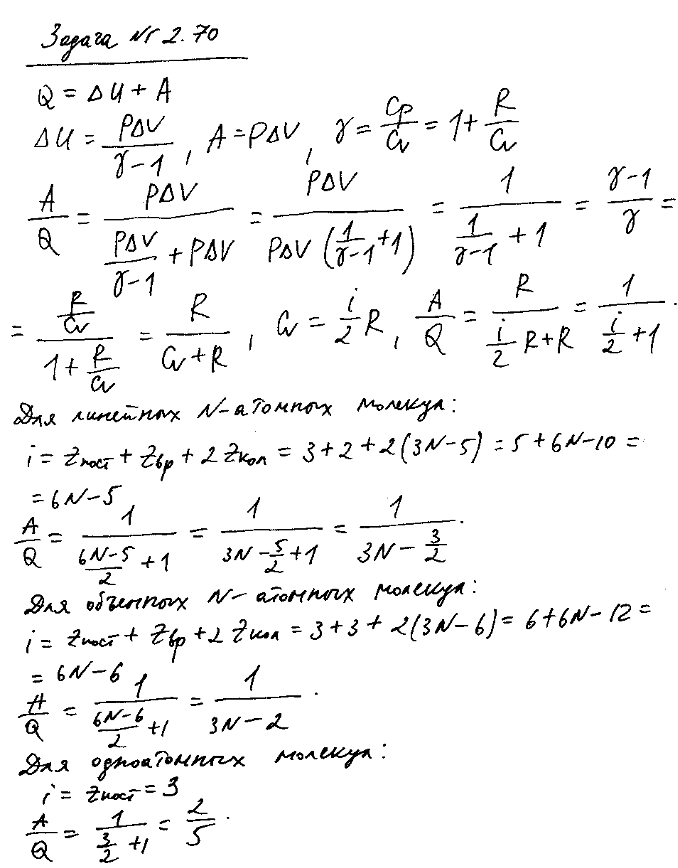 Задача № 2.70
Q = ΔU + A
ΔU = PΔV/(γ-1), A = PΔV, γ = Cp/Cv = 1 + R/Cv
A/Q = PΔV/(PΔV/(γ-1) + PΔV) = PΔV/(PΔV(1/(γ-1) + 1)) = 1/(1/(γ-1) + 1) = (γ-1)/γ =
= (R/Cv)/(1 + R/Cv) = R/(Cv + R), Cv = i/2 R, A/Q = R/(i/2 R + R) = 1/(i/2 + 1).
Для линейных N-атомных молекул:
i = Zпост + Zвр + 2Zкол = 3 + 2 + 2(3N-5) = 5 + 6N - 10 =
= 6N - 5
A/Q = 1/((6N-5)/2 + 1) = 1/(3N - 5/2 + 1) = 1/(3N - 3/2).
Для объемных N-атомных молекул:
i = Zпост + Zвр + 2Zкол = 3 + 3 + 2(3N-6) = 6 + 6N - 12 =
= 6N - 6
A/Q = 1/((6N-6)/2 + 1) = 1/(3N - 2).
Для одноатомных молекул:
i = Zпост = 3
A/Q = 1/(3/2 + 1) = 2/5.